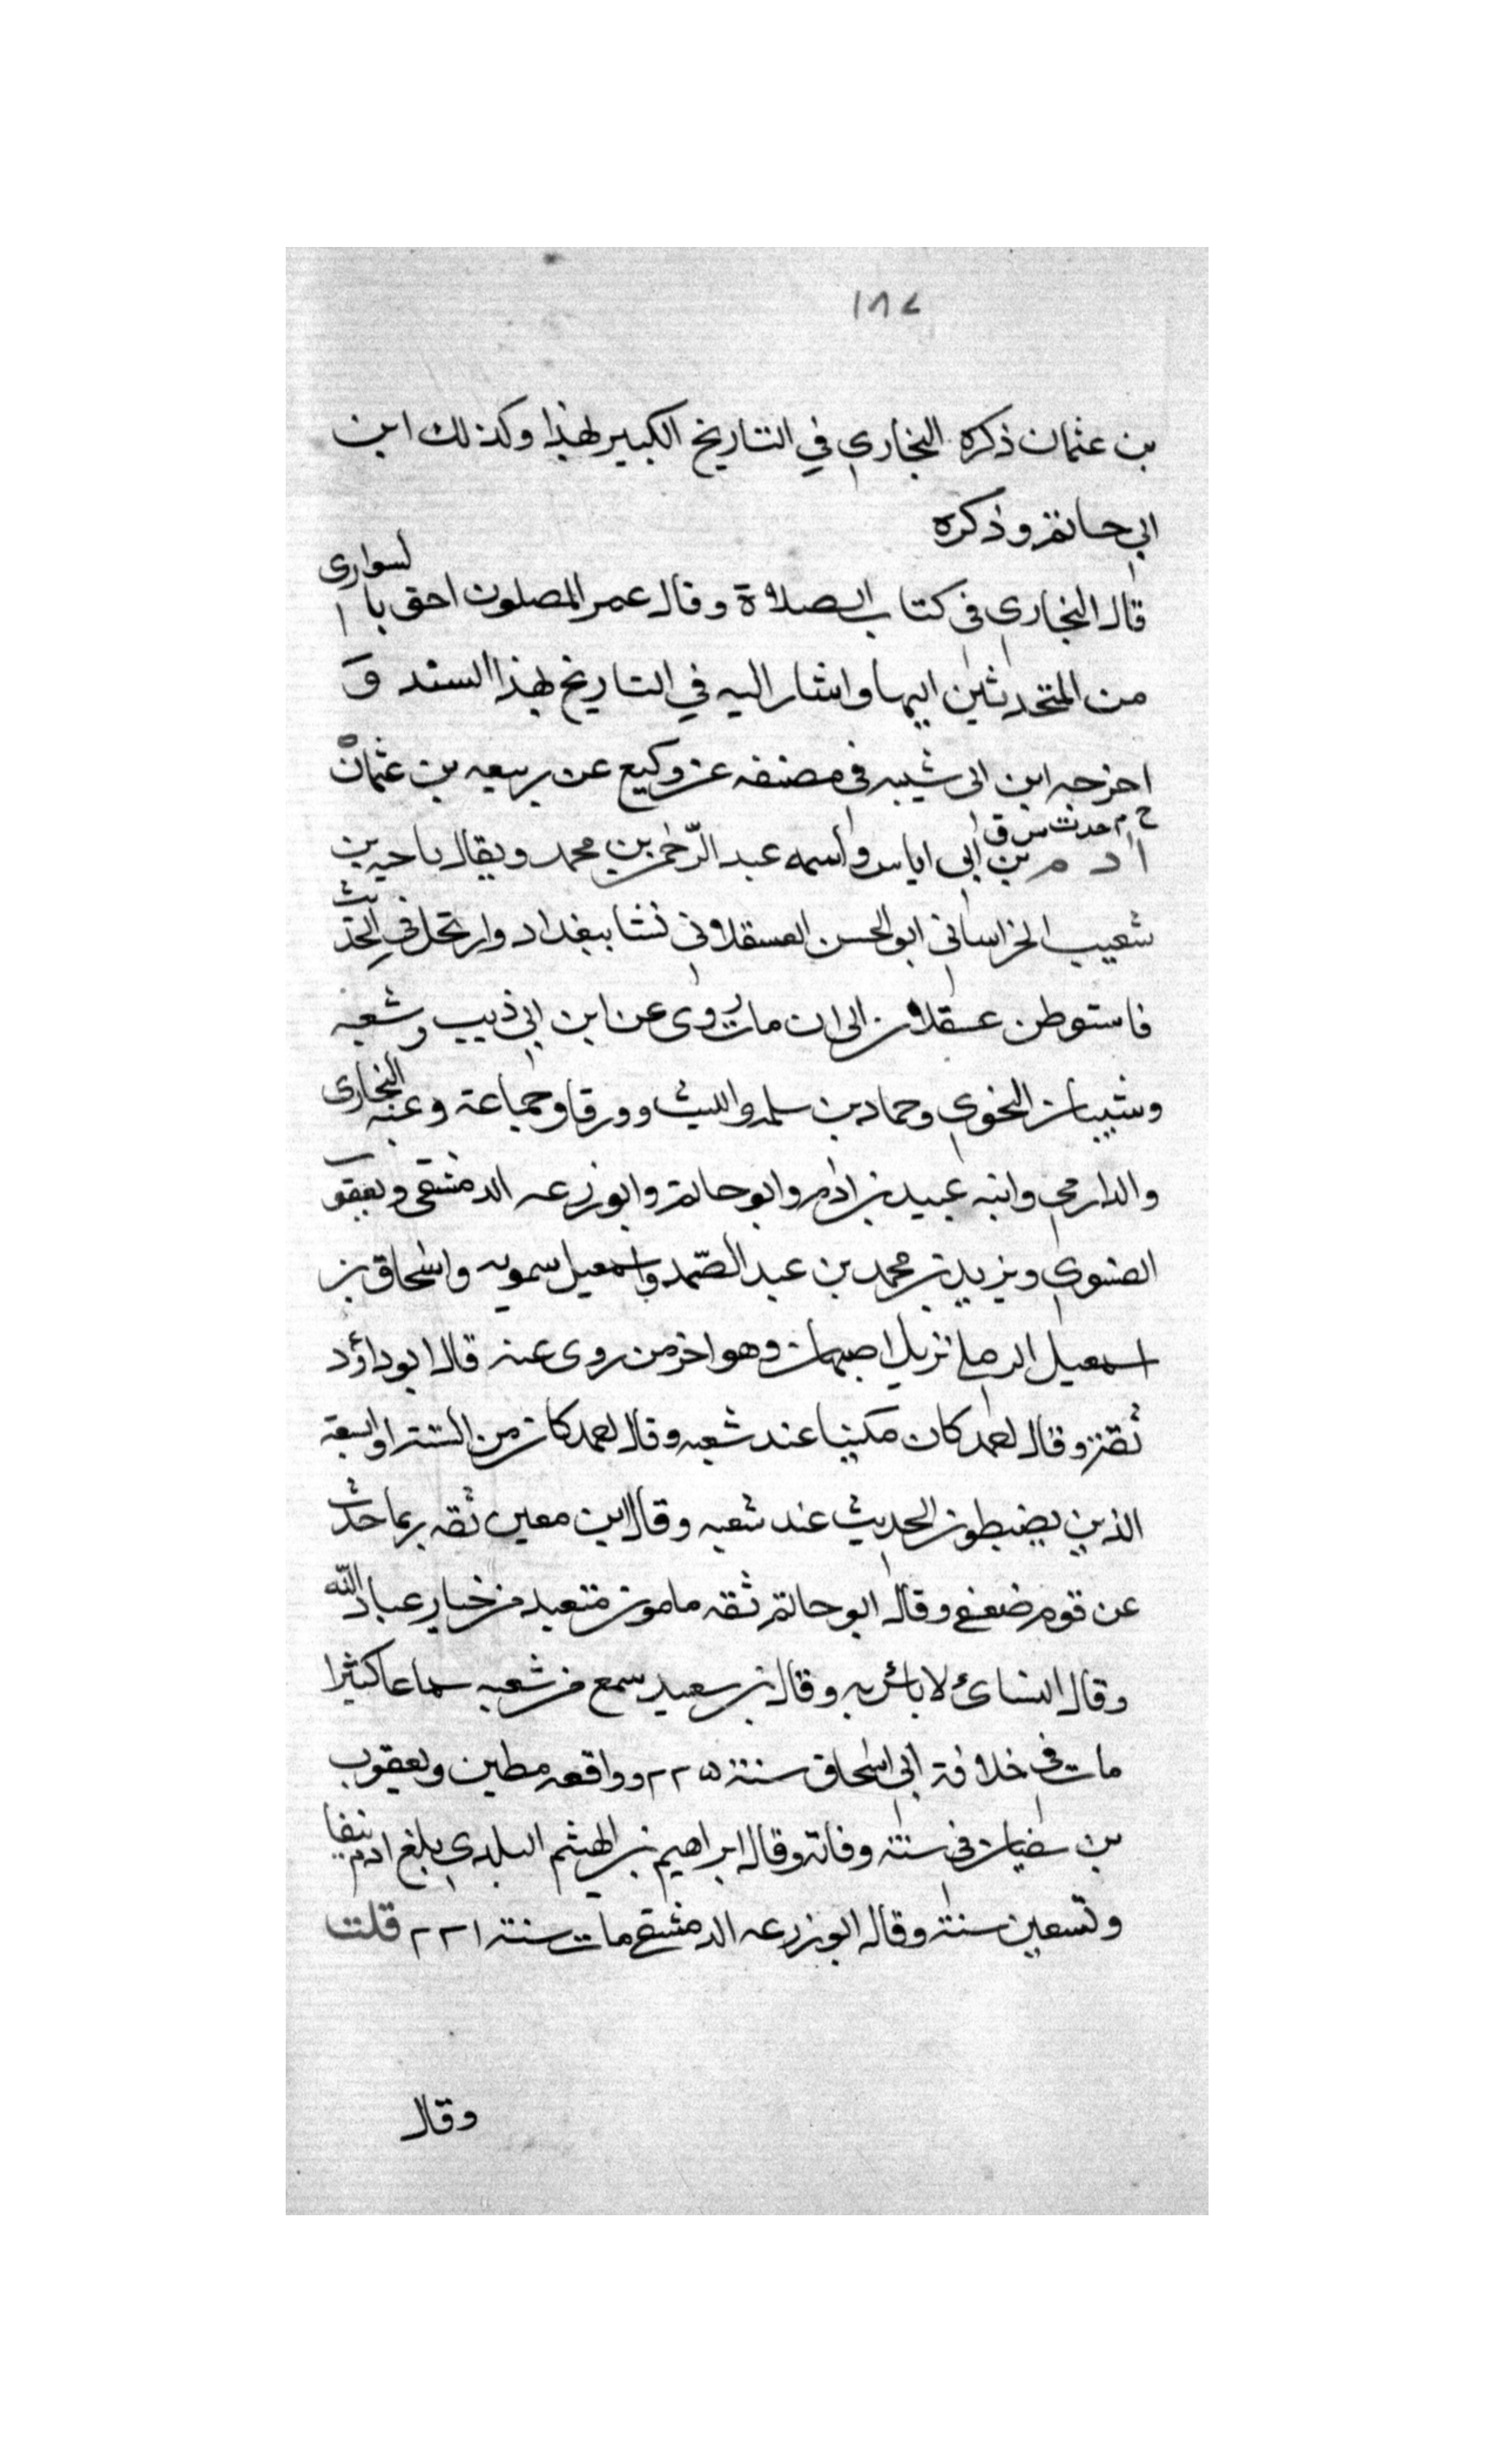 ١٨٧
بن عثمان ذكره البخاري في التاريخ الكبير بهذا وكذلك ابن
ابي حاتم وذكره
قال البخاري في كتاب الصلاة وقال عمر المصلون احق بالسواري
من المتحدثين اليها واشار اليه في التاريخ بهذا السند و
اخرجه ابن ابى شيبه فى مصنفه عن وكيع عن ربيعه بن عثمان
ادم بن أبي اياس واسمه عبد الرّحمن بن محمد ويقال ناحيه بن
شعيب الخراساني ابو الحسن العسقلاني نشا ببغداد وارتحل في الحديث
فاستوطن عسقلان الى ان مات روى عن ابن ابي ذيب وشعبه
وشيبان النحوي وحماد بن سلمه والليث وورقا وجماعة وعنه البخارى
والدارمي وابنه عبيد بن ادم وابو حاتم وابو زرعه الدمشقى ويعقوب
الفسوي ويزيد بن محمد بن عبد الصّمد واسمعيل سمويه واسحاق بن
اسمعيل الرملي نزيل اصبهان وهو اخر من روى عنه قال ابو داؤد
ثقة وقال احمد كان مكينا عند شعبه وقال احمد كان من الستة او السبعة
الذين يضبطون الحديث عند شعبه وقال ابن معين ثقه ربما حدث
عن قوم ضعفى وقال ابو حاتم ثقه مامون متعبد من خيار عباد الله
وقال النسائ لا بائس به وقال بن سعيد سمع من شعبه سماعا كثيرا
مات في خلافة ابي اسحاق سنة ٢٢٥ ووافقه مطين ويعقوب
بن سفيان في سنة وفاته وقال ابراهيم بن الهيثم البلدي بلغ ادم نيفا
وتسعين سنة وقال ابو زرعه الدمشقي مات سنة ٢٢١ قلت
وقال